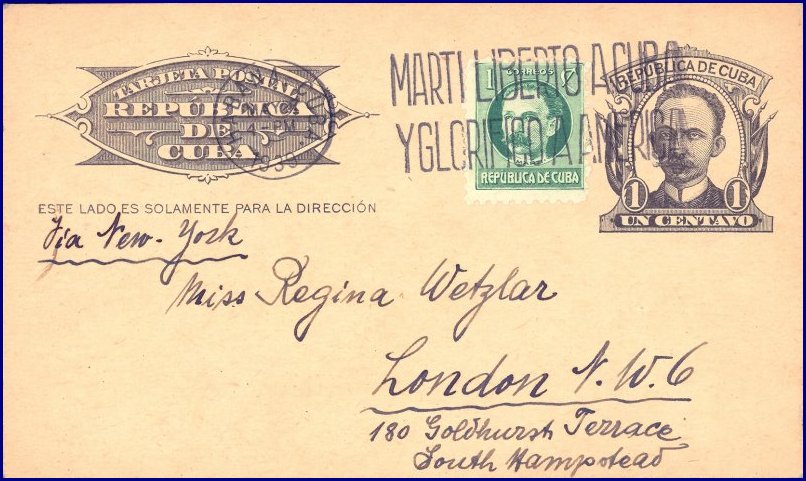 TARJETA POSTAL
REPÚBLICA
DE
CUBA
HABANA, CUBA.
PM
1939
MARTI LIBERTO A CUBA
Y GLORIFICO A AMERICA
1 CORREOS
REPÚBLICA DE CUBA
REPÚBLICA DE CUBA
1 1
UN CENTAVO
ESTE LADO ES SOLAMENTE PARA LA DIRECCIÓN
Via New-York
Miss Regina Wetzlar
London N.W.6
180 Goldhurst Terrace
South Hampstead